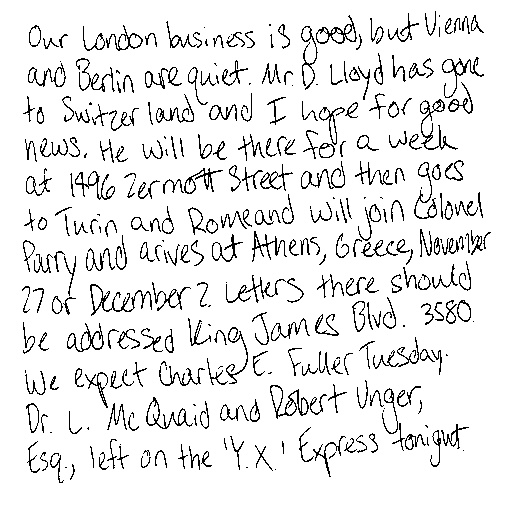 Our London business is good, but Vienna
and Berlin are quiet. Mr. D. Lloyd has gone
to Switzerland and I hope for good
news. He will be there for a week
at 1496 Zermott Street and then goes
to Turin and Rome and will join Colonel
Parry and arives at Athens, Greece, November
27 or December 2. Letters there should
be addressed King James Blvd. 3580.
We expect Charles E. Fuller Tuesday.
Dr. L. McQuaid and Robert Unger,
Esq., left on the 'Y.X.' Express tonight.